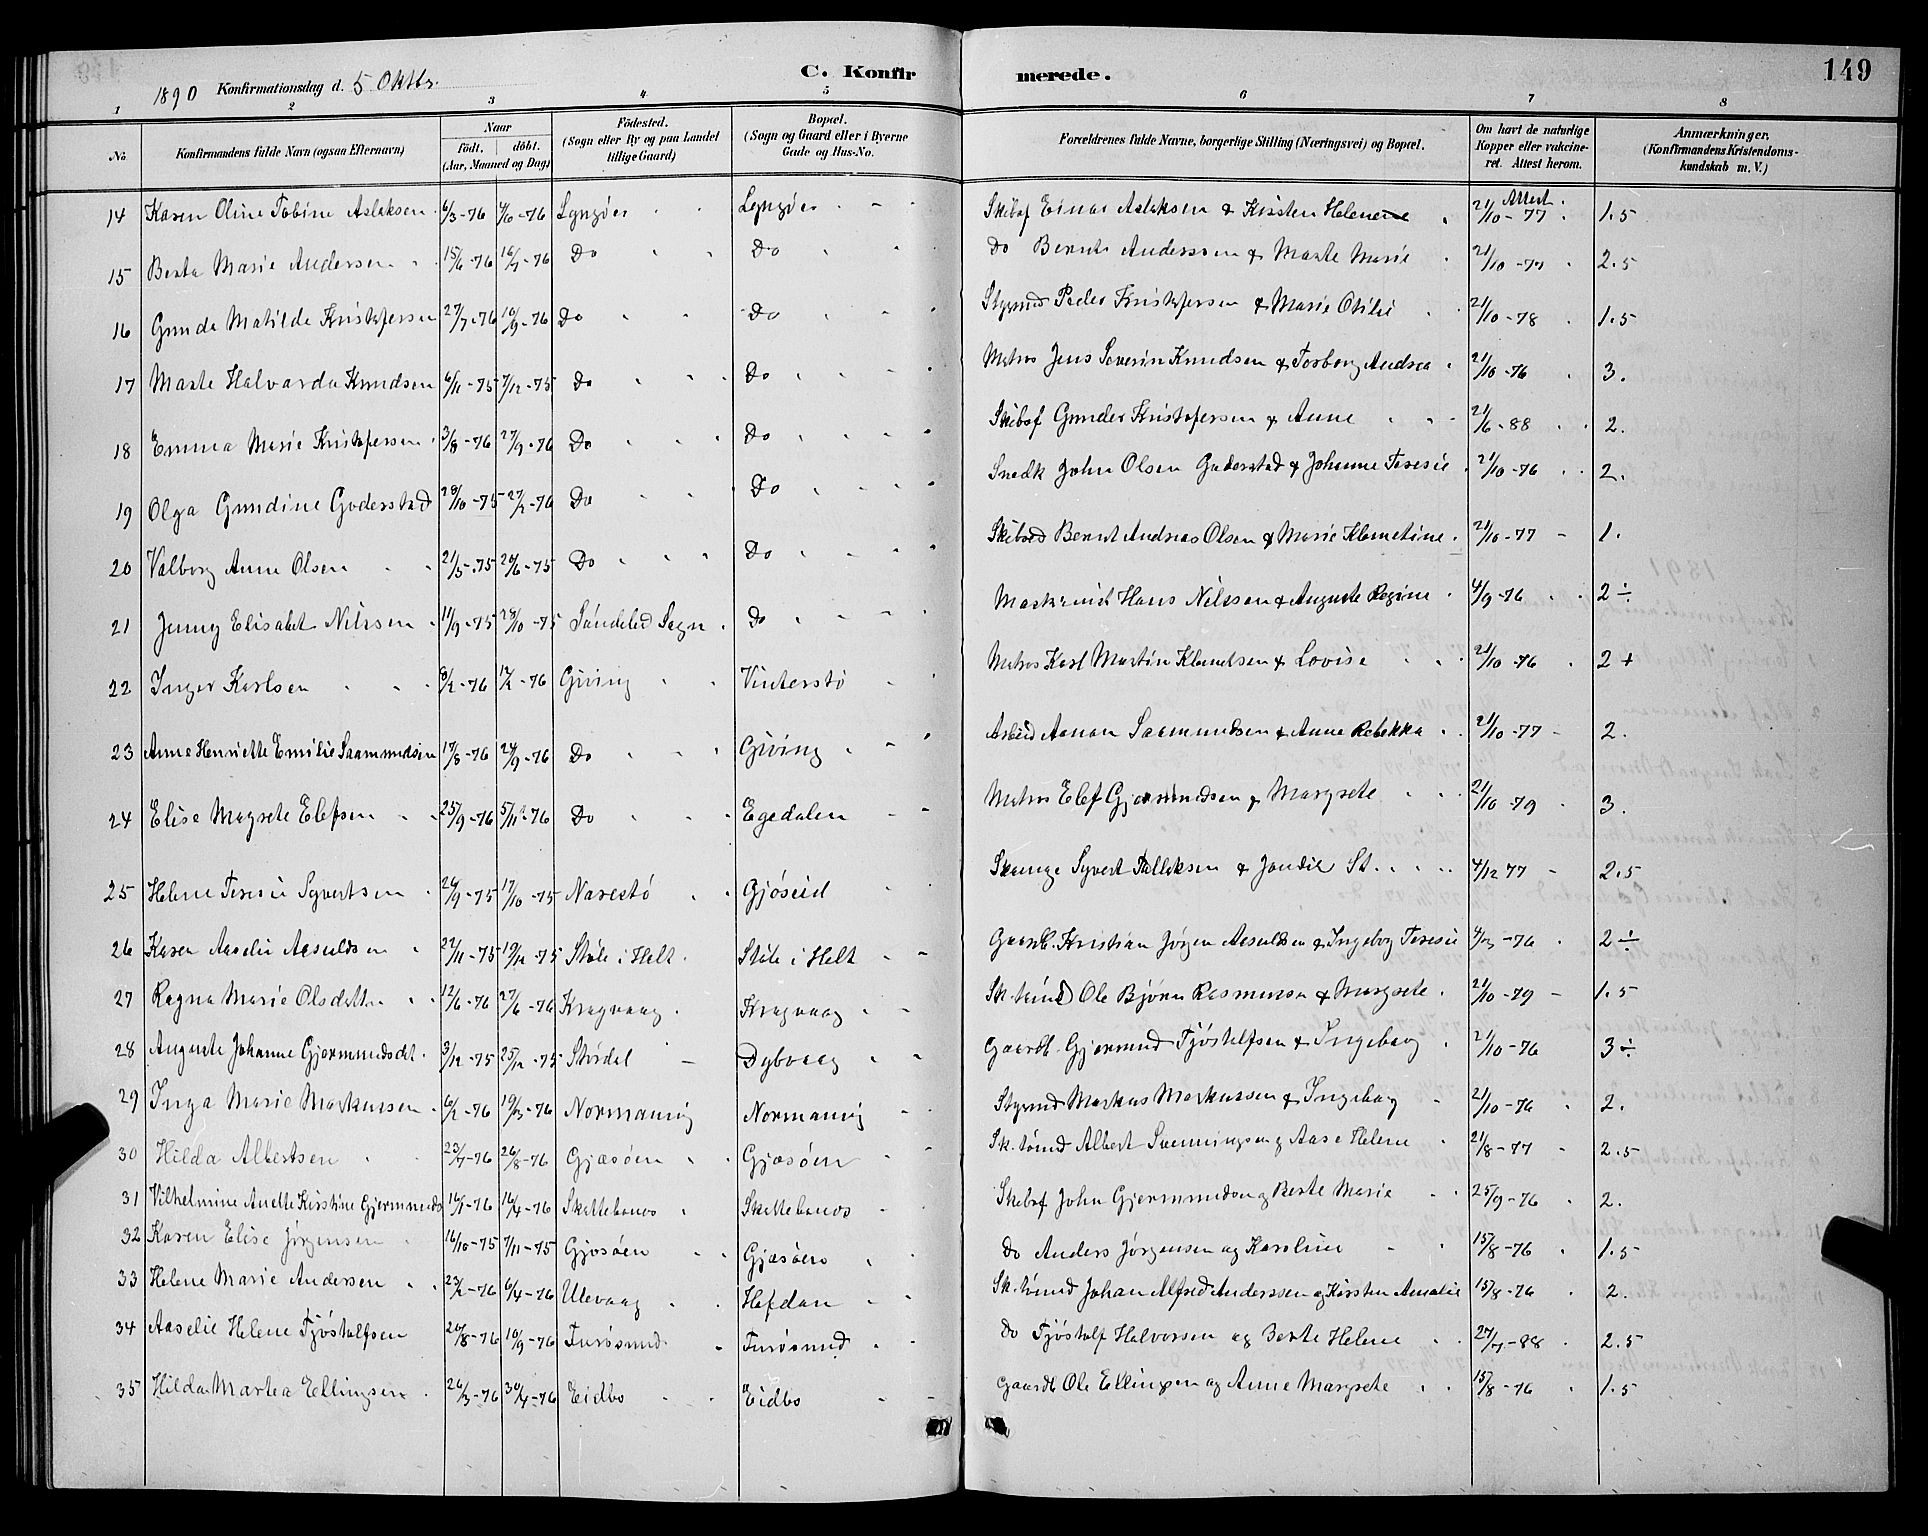 149
C. Konfirmerede.
1890 Konfirmationsdag d. 5 Oktbr.
1 2 3 4 5 6 7 8
No. Konfirmandens fulde Navn (ogsaa Efternavn) Naar født. døbt. (Aar, Maaned og Dag) Födested. (Sogn eller By og paa Landet tillige Gaard) Bopæl. (Sogn og Gaard eller i Byerne Gade og Hus-No. Forældrenes fulde Navne, borgerlige Stilling (Næringsvei) og Bopæl. Om havt de naturlige Kopper eller vakcineret. Attest herom. Anmærkninger. (Konfirmandens Kristendomskundskab m. V.)
Attest
14 Karen Oline Tobine Aslaksen 6/3-76 4/6-76 Lyngöer Lyngöer Skibsf Einar Aslaksen & Kirsten Helene 21/10-77 1.5
15 Berta Marie Andersen 15/6-76 16/7-76 Do Do Do Bernt Anderssen & Marte Marie 21/10-77 2.5
16 Gunda Matilde Kristofersen 27/7-76 10/9-76 Do Do Styrmd Peder Kristofersen & Marie Otilie 21/10-78 1.5
17 Marte Halvarda Knudsen 6/11-75 7/12-75 Do Do Matros Jens Severin Knudsen & Torborg Andrea 21/10-76 3.
18 Emma Marie Kristofersen 3/8-76 27/9-76 Do Do Skibsf Gunder Kristofersen & Anne 21/6-88 2.
19 Olga Gundine Goderstad 28/10-75 27/2-76 Do Do Snedk John Olsen Goderstad & Johanne Teresie 21/10-76 2.
20 Valborg Anne Olsen 21/5-75 24/6-75 Do Do Skibsd Bernt Andreas Olsen & Marie Klemetine 21/10-77 1.
21 Jenny Elisabet Nilssen 11/9-75 28/10-75 Söndeled Sogn Do Hans Nilssen & Auguste Regine 4/9-76 2÷
22 Inger Karlsen 8/2-76 12/2-76 Giving Vinterstö Matros Karl Martin Klemetsen & Lovise 21/10-76 2+
23 Anne Henriette Emilie Saamundsen 17/8-76 24/9-76 Do Giving Arbeid Aanon Saamundsen & Anne Rebekka 21/10-77 2.
24 Elise Magrete Elefsen 25/9-76 5/11-76 Do Egedalen Matros Elef Gjermundsen & Margrete 21/10-79 3.
25 Helene Teresie Syvertsen 26/9-75 17/10-75 Narestö Gjöseid Syvert Tallaksen & 4/12 77 2.5
26 Karen Aaselie Aasuldsen 27/11-75 19/12-75 Støle i Holt Støle i Holt Gaardb. Kristian Jørgen Aasuldsen & Ingebog Teresie 4/3-76 2÷
27 Ragna Marie Olsdatter 12/6-76 27/6-76 Kragvaag Kragvaag Sk.tömd Ole Bjørn Rasmussen & Margrete 21/10-79 1.5
28 Auguste Johanne Gjermundsdt. 3/12-75 25/12-75 Stördal Dybvaag Gaardb. Gjermund Tjöstolfsen & Ingeborg 21/10-76 3÷
29 Inga Marie Markussen 6/2-76 19/3-76 Normanvig Normanvig Styrmd Markus Markussen & Ingeborg 21/10-76 2.
30 Hilda Albertsen 23/7-76 26/8-76 Gjæsöen Gjæsöen Sk.tömd Albert Svenningsen og Aase Helene 21/8-77 2.5
31 Vilhelmine Anette Kirstine Gjermunds 16/1-76 16/4-76 Skattebanos Skattebanos Skibsf John Gjermundsen og Berte Marie 25/9-76 2.
32 Karen Elise Jørgensen 16/10-75 7/11-75 Gjæsöen Gjæsöen Do Anders Jørgensen og Karoline 15/8-76 1.5
33 Helene Marie Andersen 23/2-76 6/4-76 Ulevaag Hafdan Sk.tömd Johan Alfred Anderssen og Kirsten Amalie 15/8-76 2.
34 Aaselie Helene Tjöstolfsen 20/8-76 10/9-76 Furösund Furösund Do Tjöstolf Halvorsen og Berte Helene 27/7-88 2.5
35 Hilda Martea Ellingsen 26/3-76 30/4-76 Eidbo Eidbo Gaardb Ole Ellingsen og Anne Margrete 15/8-76 1.5